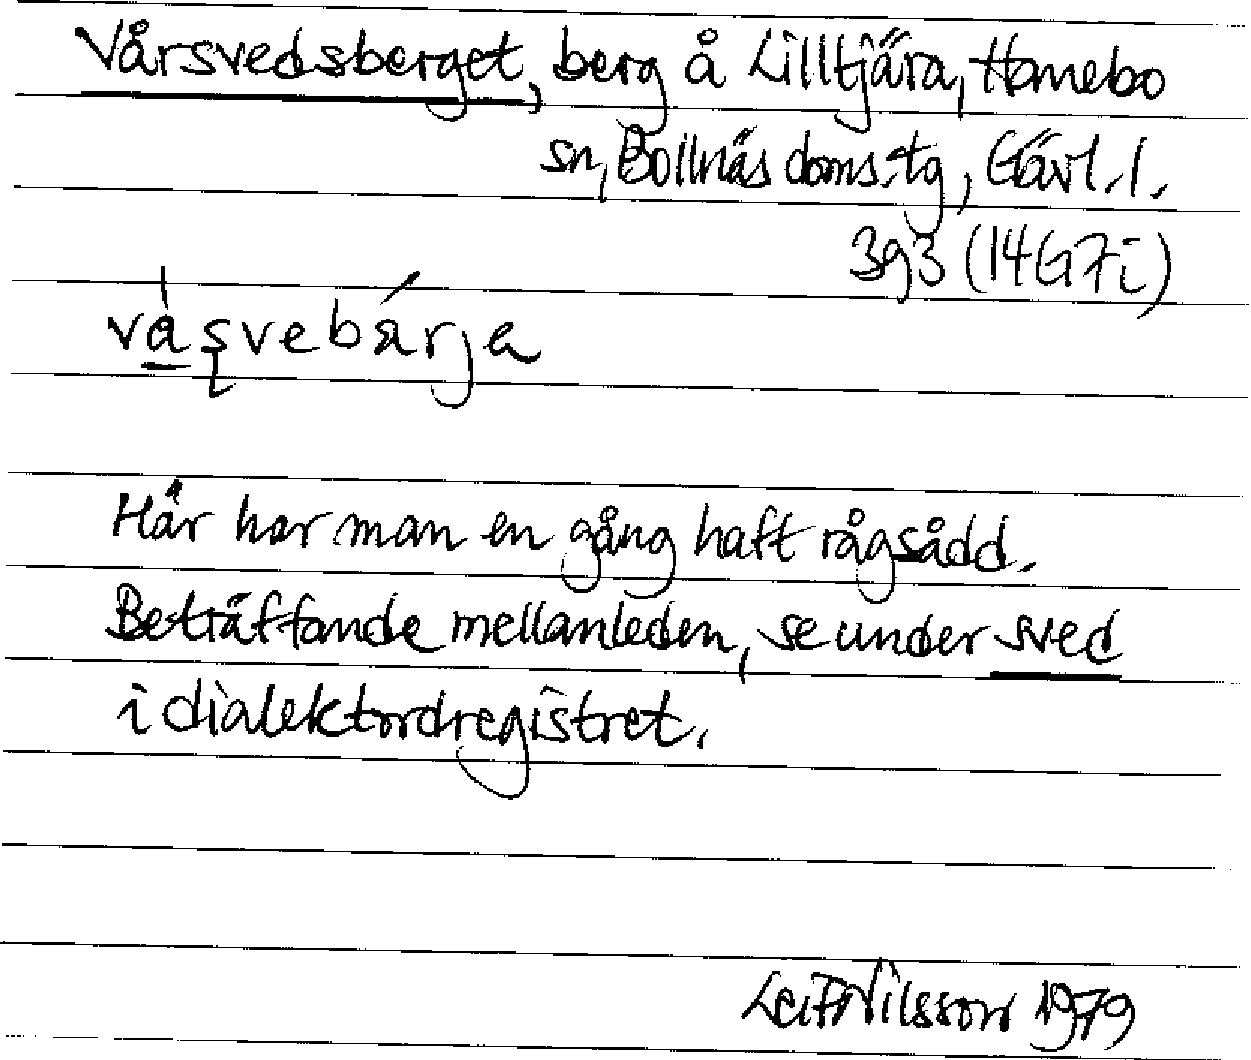 Vårsvedsberget, berg å Lilltjära, Hanebo
sn, Bollnäs doms.tg, Gävl. l.
393 (14G7i)
våsvebárja
Här har man en gång haft rågsådd.
Beträffande mellanleden, se under sved
i dialektordregistret.
Leif Nilsson 1979